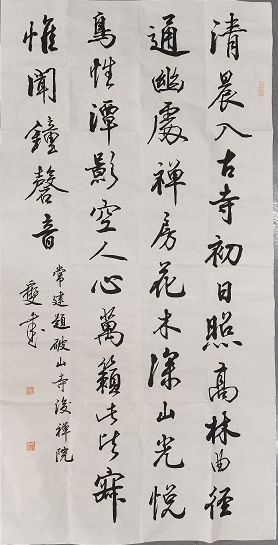 清晨入古寺初日照高林曲径
通幽處禅房花木深山光悦
鳥性潭影空人心萬籟此皆寂
惟聞鐘磬音
常建題破山寺後禅院